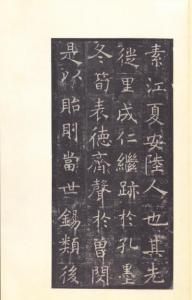 素江夏安陸人也其先
從里成仁繼跡於孔墨
冬筍表德齊聲於曽閔
是以貽則當世錫類後